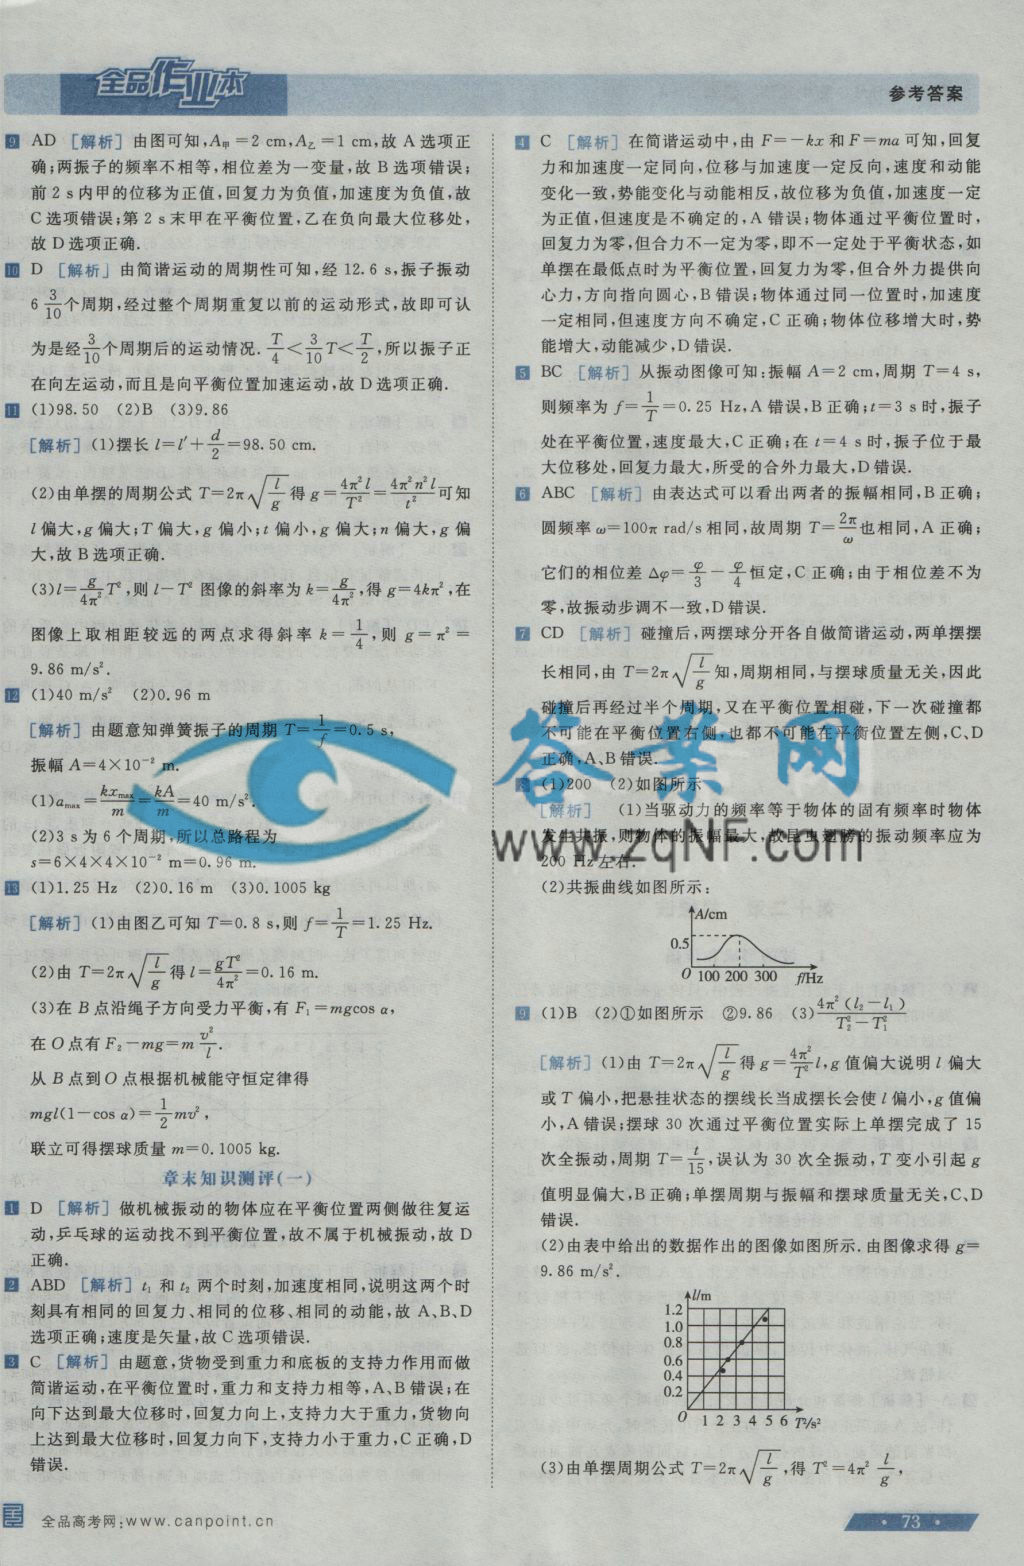 全品作业本
参考答案
9 AD [解析] 由图可知,A甲=2 cm,A乙=1 cm,故 A 选项正
确;两振子的频率不相等,相位差为一变量,故 B 选项错误;
前 2 s 内甲的位移为正值,回复力为负值,加速度为负值,故
C 选项错误;第 2 s 末甲在平衡位置,乙在负向最大位移处,
故 D 选项正确.
10 D [解析] 由简谐运动的周期性可知,经 12.6 s,振子振动
6 3/10 个周期,经过整个周期重复以前的运动形式,故即可认
为是经 3/10 个周期后的运动情况. T/4<3/10 T<T/2,所以振子正
在向左运动,而且是向平衡位置加速运动,故 D 选项正确.
11 (1)98.50 (2)B (3)9.86
[解析] (1)摆长 l=l′+d/2=98.50 cm.
(2)由单摆的周期公式 T=2π√(l/g) 得 g=4π²l/T²=4π²n²l/t² 可知
l 偏大,g 偏大;T 偏大,g 偏小;t 偏小,g 偏大;n 偏大,g 偏
大,故 B 选项正确.
(3)l=g/4π² T²,则 l-T² 图像的斜率为 k=g/4π²,得 g=4kπ²,在
图像上取相距较远的两点求得斜率 k=1/4,则 g=π²=
9.86 m/s².
12 (1)40 m/s² (2)0.96 m
[解析] 由题意知弹簧振子的周期 T=1/f=0.5 s,
振幅 A=4×10⁻² m.
(1)amax=kxmax/m=kA/m=40 m/s².
(2)3 s 为 6 个周期,所以总路程为
s=6×4×4×10⁻² m=0.96 m.
13 (1)1.25 Hz (2)0.16 m (3)0.1005 kg
[解析] (1)由图乙可知 T=0.8 s,则 f=1/T=1.25 Hz.
(2)由 T=2π√(l/g) 得 l=gT²/4π²=0.16 m.
(3)在 B 点沿绳子方向受力平衡,有 F₁=mgcos α,
在 O 点有 F₂-mg=m v²/l.
从 B 点到 O 点根据机械能守恒定律得
mgl(1-cos α)=1/2 mv²,
联立可得摆球质量 m=0.1005 kg.
章末知识测评(一)
1 D [解析] 做机械振动的物体应在平衡位置两侧做往复运
动,乒乓球的运动找不到平衡位置,故不属于机械振动,故 D
正确.
2 ABD [解析] t₁ 和 t₂ 两个时刻,加速度相同,说明这两个时
刻具有相同的回复力、相同的位移、相同的动能,故 A、B、D
选项正确;速度是矢量,故 C 选项错误.
3 C [解析] 由题意,货物受到重力和底板的支持力作用而做
简谐运动,在平衡位置时,重力和支持力相等,A、B 错误;在
向下达到最大位移时,回复力向上,支持力大于重力,货物向
上达到最大位移时,回复力向下,支持力小于重力,C 正确,D
错误.
4 C [解析] 在简谐运动中,由 F=-kx 和 F=ma 可知,回复
力和加速度一定同向,位移与加速度一定反向,速度和动能
变化一致,势能变化与动能相反,故位移为负值,加速度一定
为正值,但速度是不确定的,A 错误;物体通过平衡位置时,
回复力为零,但合力不一定为零,即不一定处于平衡状态,如
单摆在最低点时为平衡位置,回复力为零,但合外力提供向
心力,方向指向圆心,B 错误;物体通过同一位置时,加速度
一定相同,但速度方向不确定,C 正确;物体位移增大时,势
能增大,动能减少,D 错误.
5 BC [解析] 从振动图像可知:振幅 A=2 cm,周期 T=4 s,
则频率为 f=1/T=0.25 Hz,A 错误,B 正确;t=3 s 时,振子
处在平衡位置,速度最大,C 正确;在 t=4 s 时,振子位于最
大位移处,回复力最大,所受的合外力最大,D 错误.
6 ABC [解析] 由表达式可以看出两者的振幅相同,B 正确;
圆频率 ω=100π rad/s 相同,故周期 T=2π/ω 也相同,A 正确;
它们的相位差 Δφ=φ/3-φ/4 恒定,C 正确;由于相位差不为
零,故振动步调不一致,D 错误.
7 CD [解析] 碰撞后,两摆球分开各自做简谐运动,两单摆摆
长相同,由 T=2π√(l/g) 知,周期相同,与摆球质量无关,因此
碰撞后再经过半个周期,又在平衡位置相碰,下一次碰撞都
不可能在平衡位置右侧,也都不可能在平衡位置左侧,C、D
正确,A、B 错误.
(1)200 (2)如图所示
[解析] (1)当驱动力的频率等于物体的固有频率时物体
发生共振,则物体的振幅最大,故昆虫翅膀的振动频率应为
200 Hz 左右.
(2)共振曲线如图所示:
A/cm
0.5
O 100 200 300 f/Hz
9 (1)B (2)①如图所示 ②9.86 (3)4π²(l₂-l₁)/(T₂²-T₁²)
[解析] (1)由 T=2π√(l/g) 得 g=4π²/T² l,g 值偏大说明 l 偏大
或 T 偏小,把悬挂状态的摆线长当成摆长会使 l 偏小,g 值偏
小,A 错误;摆球 30 次通过平衡位置实际上单摆完成了 15
次全振动,周期 T=t/15,误认为 30 次全振动,T 变小引起 g
值明显偏大,B 正确;单摆周期与振幅和摆球质量无关,C、D
错误.
(2)由表中给出的数据作出的图像如图所示.由图像求得 g=
9.86 m/s².
l/m
1.2
1.0
0.8
0.6
0.4
0.2
O 1 2 3 4 5 6 T²/s²
(3)由单摆周期公式 T=2π√(l/g),得 T²=4π² l/g,
答案网
www.zqNF.com
全品高考网:www.canpoint.cn
· 73 ·